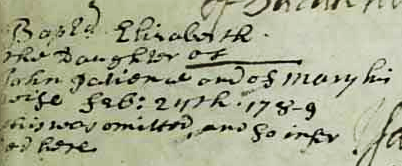 Bapt'd Elizabeth
the Daughter of
John Patience and of Mary his
wife Feb: 24th. 178-9
this was omitted, and so inser
ed here